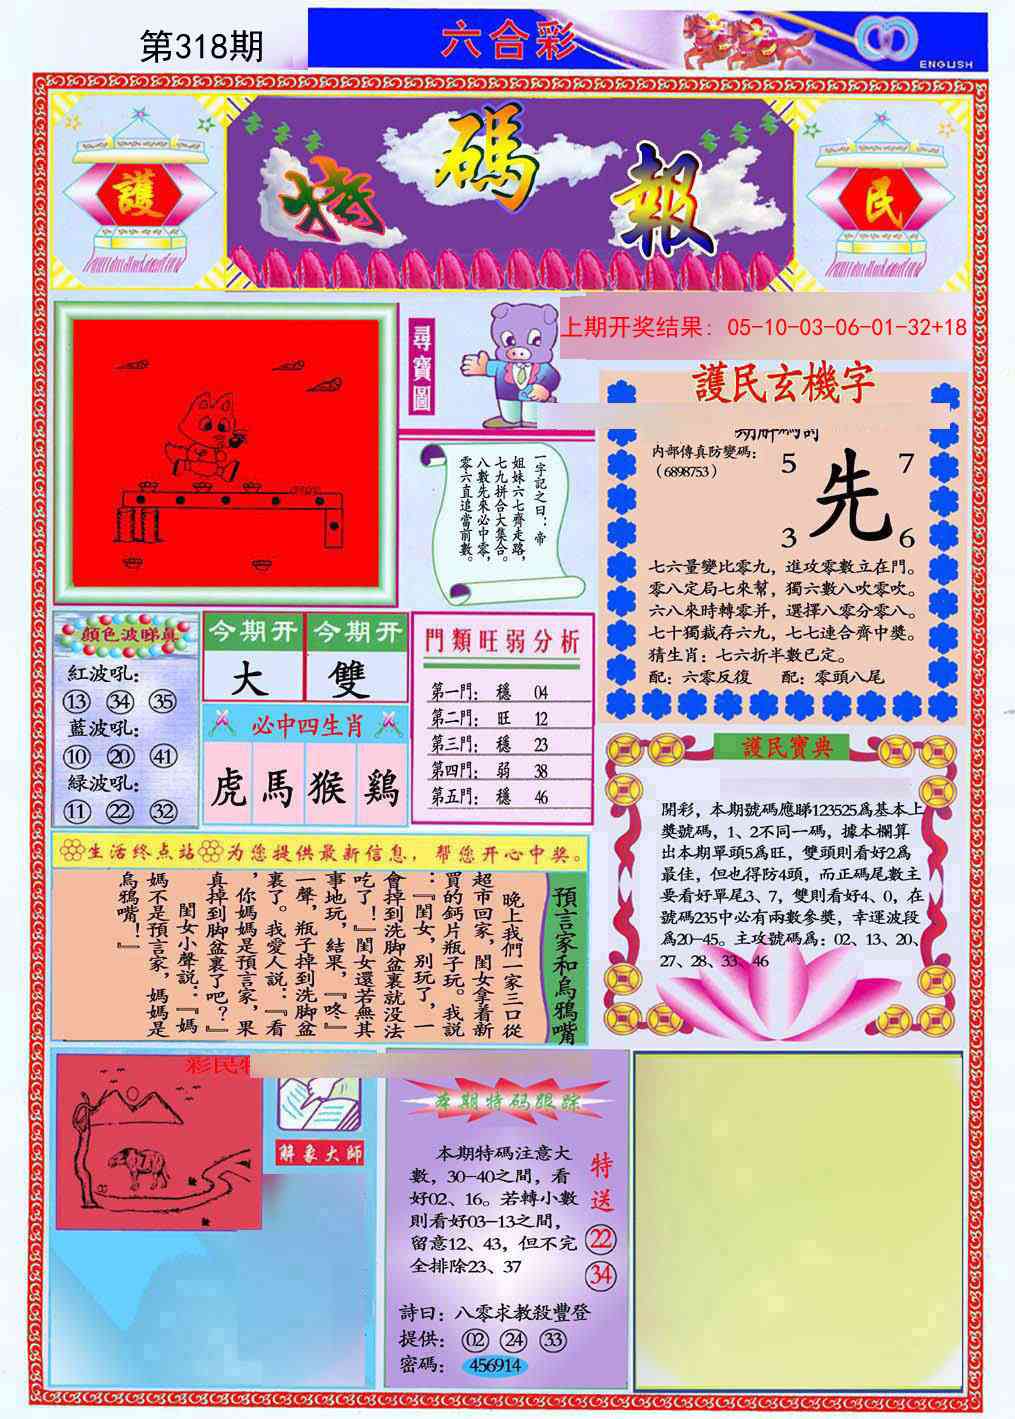 第318期
六合彩
ENGLISH
護
特碼報
民
尋寶圖
上期开奖结果：05-10-03-06-01-32+18
護民玄機字
内部傳真防變碼：
（6898753）
5
7
先
3
6
七六量變比零九，進攻零數立在門。
零八定局七來幫，獨六數八吹零吹。
六八來時轉零并，選擇八零分零八。
七十獨裁存六九，七七連合齊中獎。
猜生肖：七六折半數已定。
配：六零反復 配：零頭八尾
一字記之曰：帝
姐妹六七齊走路，
七九拼合大集合。
八數先來必中零，
零六直追當前數。
顔色波睇真
紅波吼：
13 34 35
藍波吼：
10 20 41
緑波吼：
11 22 32
今期开 今期开
大 雙
必中四生肖
虎 馬 猴 鷄
門類旺弱分析
第一門： 穩 04
第二門： 旺 12
第三門： 穩 23
第四門： 弱 38
第五門： 穩 46
護民寶典
開彩，本期號碼應睇123525爲基本上
獎號碼，1、2不同一碼，據本欄算
出本期單頭5爲旺，雙頭則看好2爲
最佳，但也得防4頭，而正碼尾數主
要看好單尾3、7，雙則看好4、0，在
號碼235中必有兩數參獎，幸運波段
爲20-45。主攻號碼爲：02、13、20、
27、28、33、46
生活终点站 为您提供最新信息，帮您开心中奖。
預言家和烏鴉嘴
晚上我們一家三口從
超市回家，閨女拿着新
買的鈣片瓶子玩。我説
：『閨女，别玩了，一
會掉到洗脚盆裏就没法
吃了！』閨女還若無其
事地玩，結果，『咚』
一聲，瓶子掉到洗脚盆
裏了。我愛人説：『看
，你媽媽是預言家，果
真掉到脚盆裏了吧？』
閨女小聲説：『媽
媽不是預言家，媽媽是
烏鴉嘴！』
彩民
解象大師
本期特码跟踪
本期特码注意大
數，30-40之間，看
好02、16。若轉小數
則看好03-13之間，
留意12、43，但不完
全排除23、37
特送
22
34
詩曰：八零求教殺豐登
提供： 02 24 33
密碼： 456914